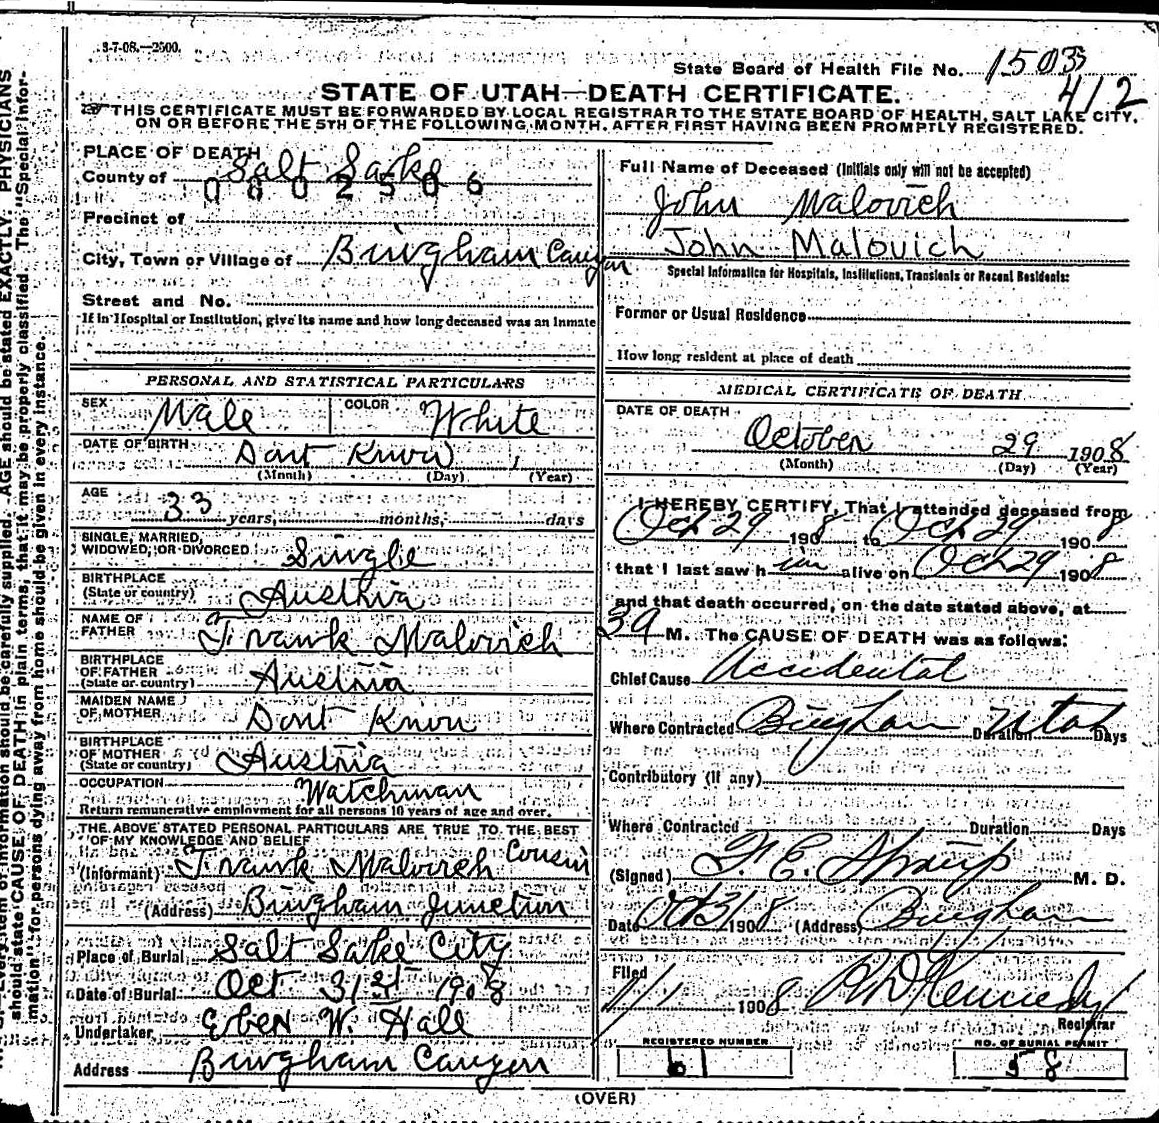 3-7-08.—2500.
State Board of Health File No. 1503
412
STATE OF UTAH—DEATH CERTIFICATE.
THIS CERTIFICATE MUST BE FORWARDED BY LOCAL REGISTRAR TO THE STATE BOARD OF HEALTH, SALT LAKE CITY,
ON OR BEFORE THE 5TH OF THE FOLLOWING MONTH, AFTER FIRST HAVING BEEN PROMPTLY REGISTERED.
PLACE OF DEATH
County of Salt Lake
0802506
Precinct of
City, Town or Village of Bingham Canyon
Street and No.
If in Hospital or Institution, give its name and how long deceased was an Inmate
PERSONAL AND STATISTICAL PARTICULARS
SEX Male COLOR White
DATE OF BIRTH Dont Know
(Month) (Day) (Year)
AGE
33 years, months, days
SINGLE, MARRIED,
WIDOWED, OR DIVORCED Single
BIRTHPLACE
(State or country) Austria
NAME OF
FATHER Frank Malovich
BIRTHPLACE
OF FATHER
(State or country) Austria
MAIDEN NAME
OF MOTHER Dont Know
BIRTHPLACE
OF MOTHER
(State or country) Austria
OCCUPATION Watchman
Return remunerative employment for all persons 10 years of age and over.
THE ABOVE STATED PERSONAL PARTICULARS ARE TRUE TO THE BEST
OF MY KNOWLEDGE AND BELIEF
(Informant) Frank Malovich Cousin
(Address) Bingham Junction
Place of Burial Salt Lake City
Date of Burial Oct 31st 1908
Undertaker Eben W. Hall
Address Bingham Canyon
Full Name of Deceased (Initials only will not be accepted)
John Malovich
John Malovich
Special Information for Hospitals, Institutions, Transients or Recent Residents:
Former or Usual Residence
How long resident at place of death
MEDICAL CERTIFICATE OF DEATH
DATE OF DEATH
October 29 1908
(Month) (Day) (Year)
I HEREBY CERTIFY, That I attended deceased from
Oct 29 1908 to Oct 29 1908
that I last saw him alive on Oct 29 1908
and that death occurred, on the date stated above, at
M. The CAUSE OF DEATH was as follows:
Chief Cause Accidental
Where Contracted Bingham Utah Duration Days
Contributory (if any)
Where Contracted Duration Days
(Signed) F. E. Straup M. D.
Date Oct 31 1908 (Address) Bingham
Filed
11/1 1908 Kennedy
Registrar
REGISTERED NUMBER
61
NO. OF BURIAL PERMIT
58
(OVER)
should state CAUSE OF DEATH in plain terms, that it may be properly classified. The "Special Infor-
mation" for persons dying away from home should be given in every instance.